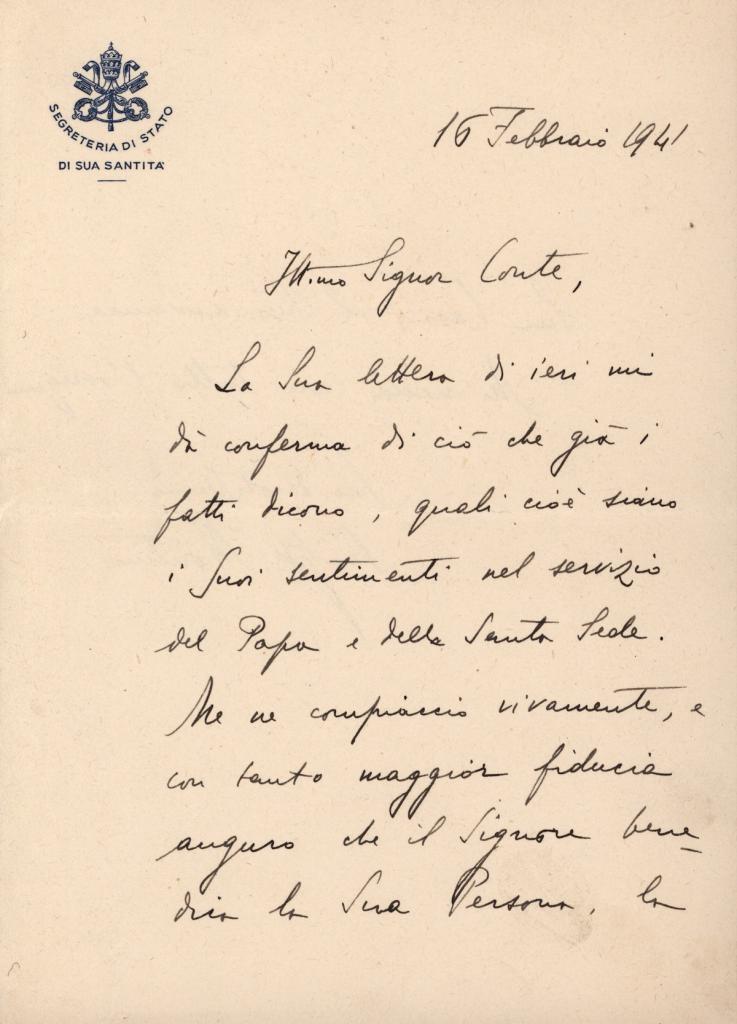 SEGRETERIA DI STATO
DI SUA SANTITA'
16 Febbraio 1941
Ill.mo Signor Conte,
La Sua lettera di ieri mi
dà conferma di ciò che già i
fatti dicono, quali cioè siano
i Suoi sentimenti nel servizio
del Papa e della Santa Sede.
Me ne compiaccio vivamente, e
con tanto maggior fiducia
auguro che il Signore bene-
dica la Sua Persona, la